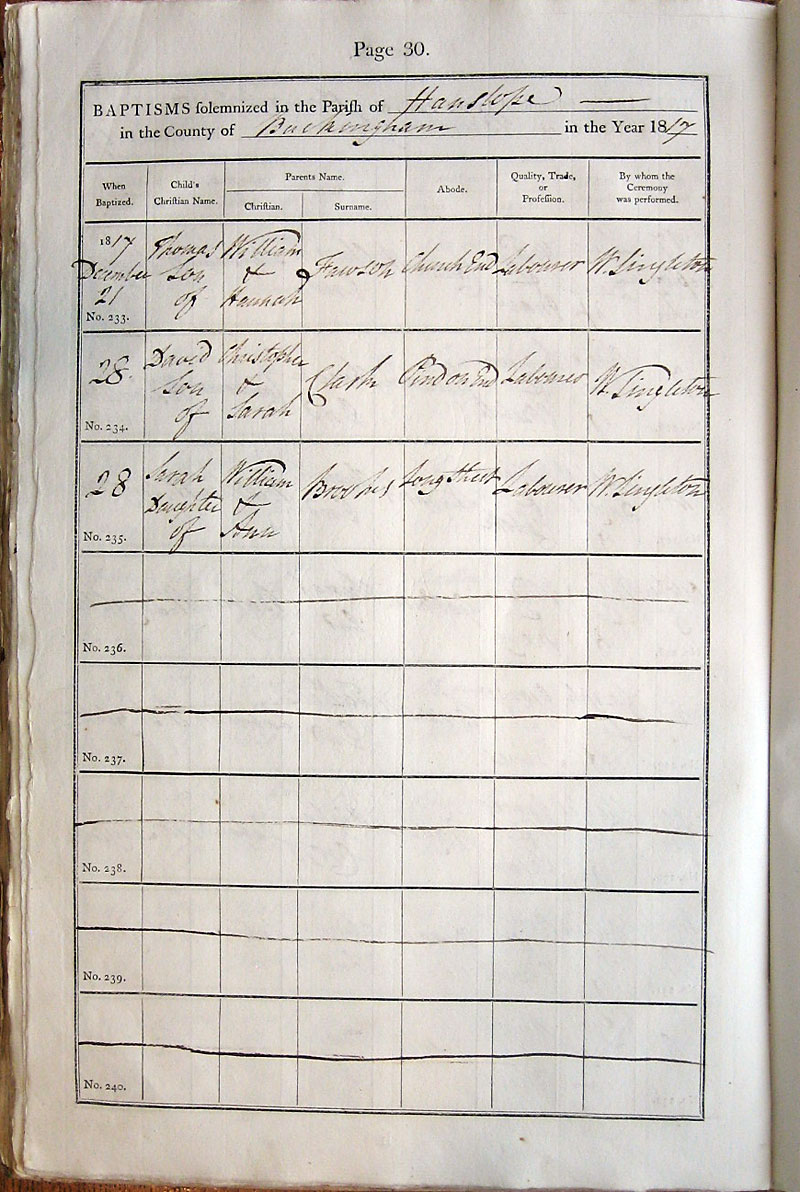 Page 30.
BAPTISMS ſolemnized in the Pariſh of Hanslope
in the County of Buckingham in the Year 1817
When Baptized.
Child's Chriſtian Name.
Parents Name.
Chriſtian.
Surname.
Abode.
Quality, Trade, or Profeſſion.
By whom the Ceremony was performed.
1817 Thomas William
December Son & Fawson Church End Labourer W. Singleton
21 of Hannah
No. 233.
David Christopher
28 Son & Clark Pindon End Labourer W. Singleton
of Sarah
No. 234.
Sarah William
28 Daughter & Brookes Long Street Labourer W. Singleton
of Ann
No. 235.
No. 236.
No. 237.
No. 238.
No. 239.
No. 240.